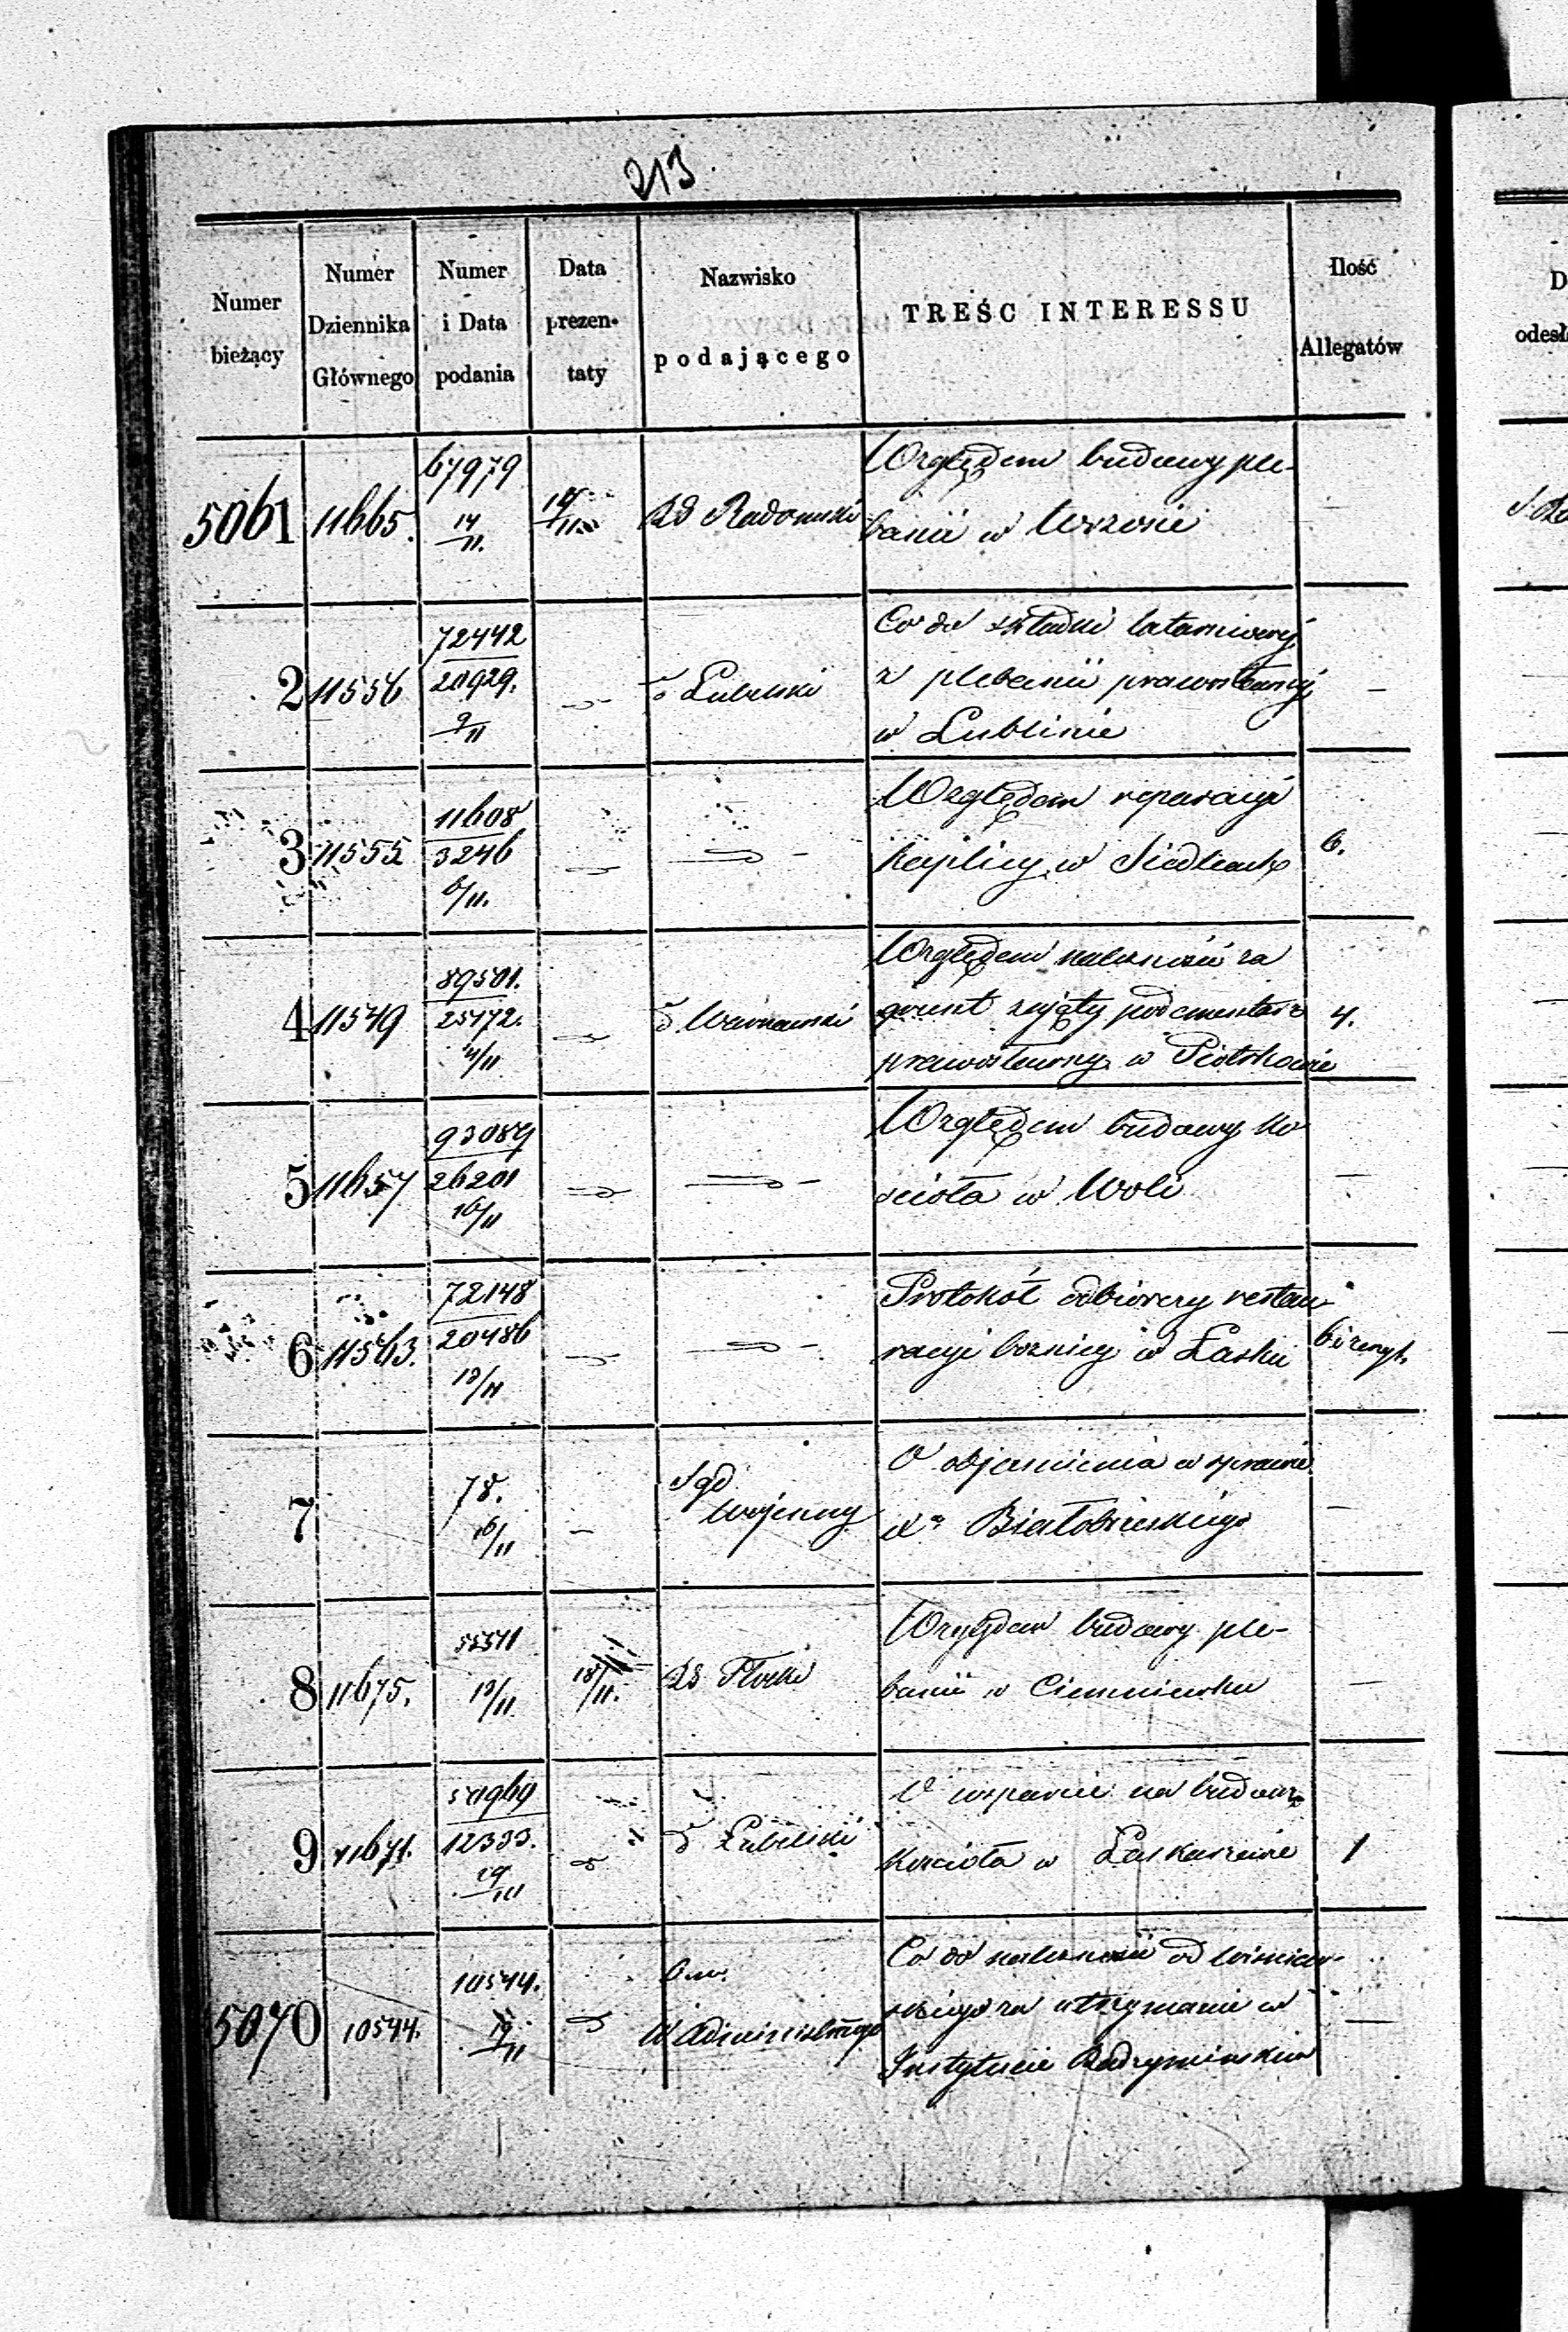 213
Numer bieżący
Numer Dziennika Głównego
Numer i Data podania
Data prezen- taty
Nazwisko podającego
TREŚC INTERESSU
Ilość Allegatów
5061 11665. 67979 14/11. 18/11 Rd Radomski Względem budowy ple-
banii w Wrzosie
2 11556 72442 20929. 9/11 " Lubelski Co do składki latarniowej
z plebanii prawosławnej
w Lublinie
3 11555 11608 3246 6/11. Względem reparacyi 6.
kaplicy w Siedlcach
4 11549 89501. 25472. 4/11 " Warszawski Względem należności za 4.
grunt zajęty pod cmentarz
prawosławny w Piotrkowie
5 11657 93089 26201 16/11 Względem budowy ko
ścioła w Woli
6 11563. 72148 20486 13/11 Protokół odbiorczy restau
racyi bożnicy w Łasku
7 78. 16/11 Sąd Wojenny O objaśnienia w sprawie
Xa Białobrzeskiego
8 11675. 55571 13/11 18/11. Rd Płocki Względem budowy ple-
banii w Ciemniewku
9 11671. 12333. " Lubelski O wsparcie na budowę 1
Kościoła w Łaskarzewie
5070 10544. 10544. 19/11 W Administracyj Co do należności od Wiśniew-
skiego za utrzymanie w
Instytucie
D
odesł